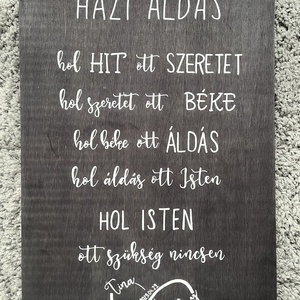 HÁZI ÁLDÁS
hol HIT ott SZERETET
hol szeretet ott BÉKE
hol béke ott ÁLDÁS
hol áldás ott Isten
HOL ISTEN
ott szükség nincsen
Tina